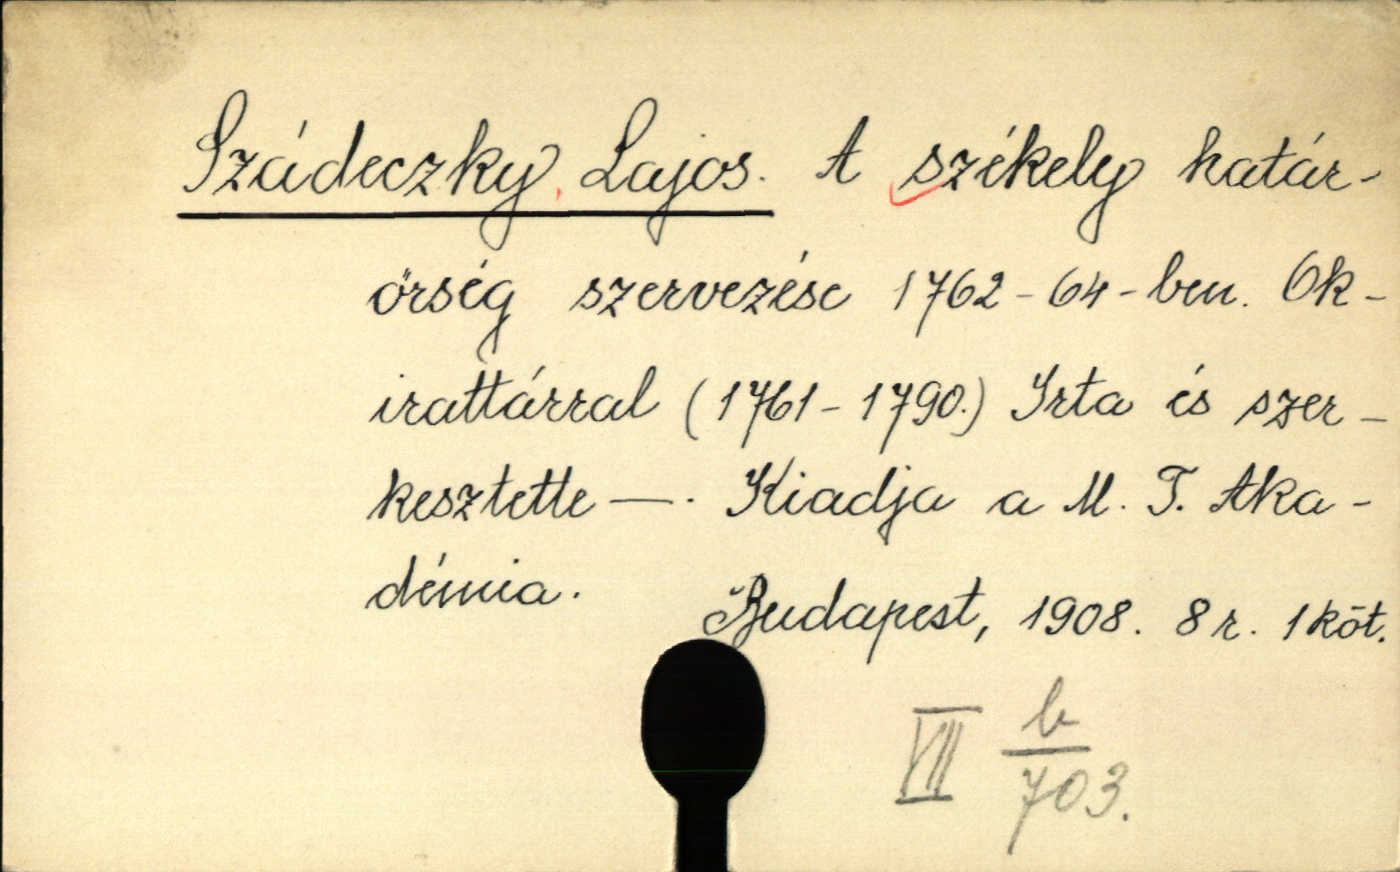 Szádeczky, Lajos. A székely határ-
őrség szervezése 1762-64-ben. Ok-
irattárral (1761-1790.) Irta és szer-
kesztette —. Kiadja a M. T. Aka-
démia.
Budapest, 1908. 8 r. 1 köt.
VII b/703.